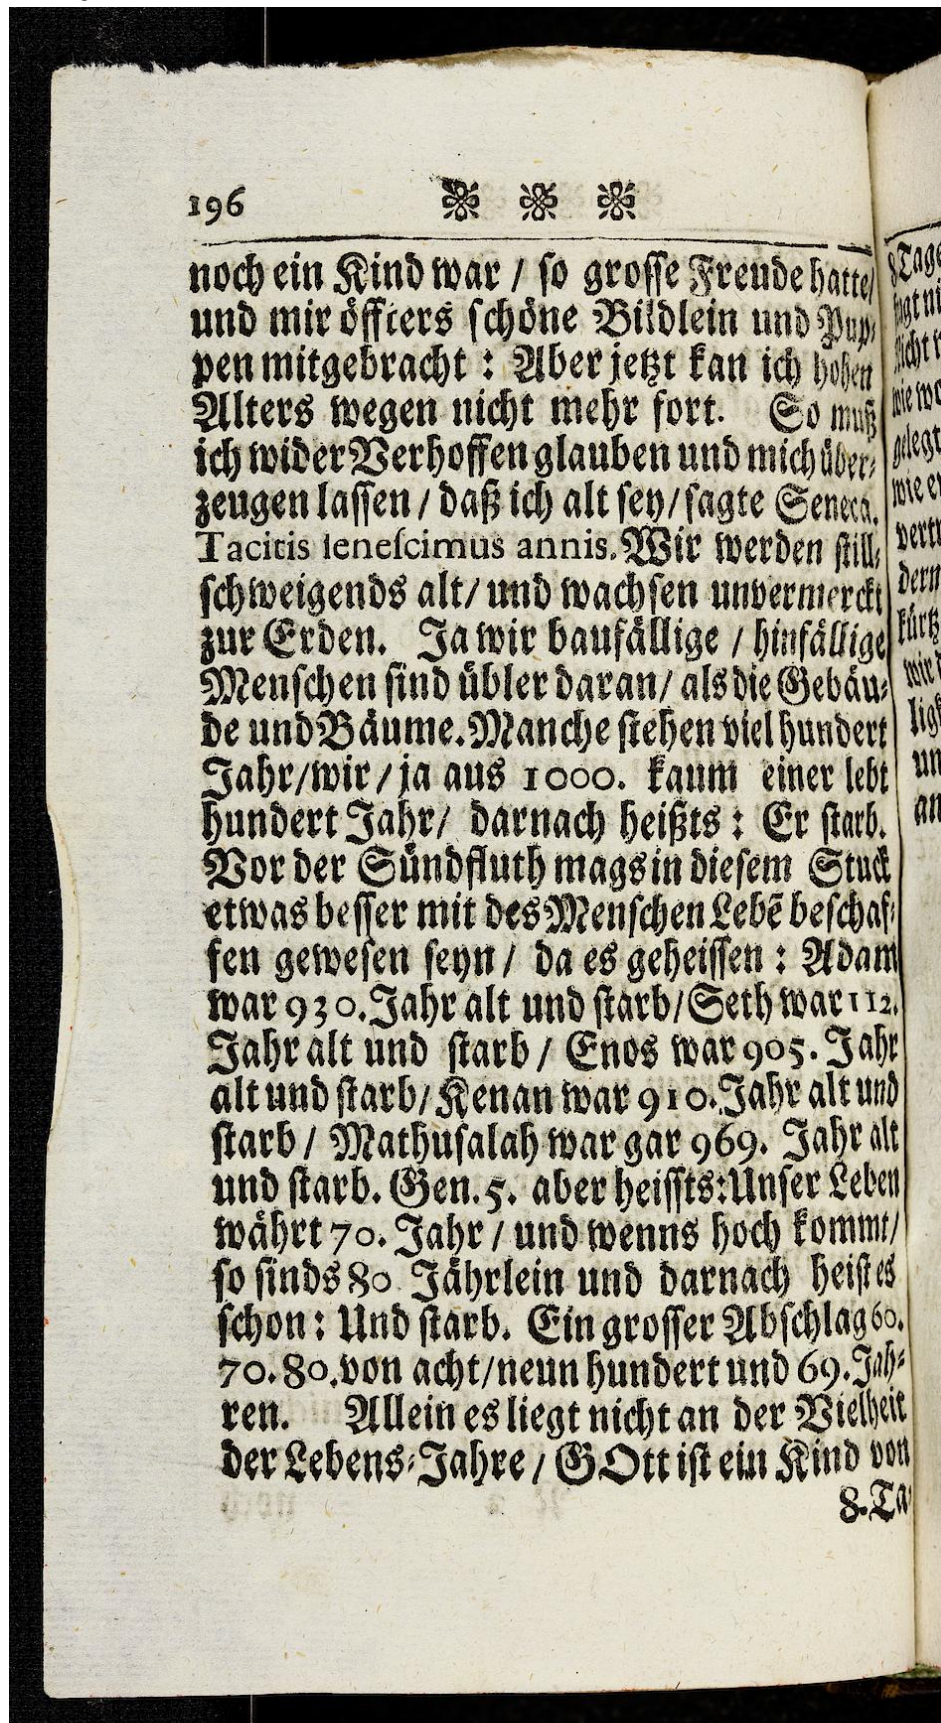 196
noch ein Kind war / so grosse Freude hatte/
und mir öffters schöne Bildlein und Pup-
pen mitgebracht : Aber jetzt kan ich hohen
Alters wegen nicht mehr fort. So muß
ich wider Verhoffen glauben und mich über-
zeugen lassen / daß ich alt sey / sagte Seneca.
Tacitis senescimus annis. Wir werden still-
schweigends alt / und wachsen unvermerckt
zur Erden. Ja wir baufällige / hinfällige
Menschen sind übler daran / als die Gebäu-
de und Bäume. Manche stehen viel hundert
Jahr / wir / ja aus 1000. kaum einer lebt
hundert Jahr / darnach heißts : Er starb.
Vor der Sündfluth mags in diesem Stuck
etwas besser mit des Menschen Lebē beschaf-
fen gewesen seyn / da es geheissen : Adam
war 930. Jahr alt und starb / Seth war 112.
Jahr alt und starb / Enos war 905. Jahr
alt und starb / Kenan war 910. Jahr alt und
starb / Mathusalah war gar 969. Jahr alt
und starb. Gen. 5. aber heissts: Unser Leben
währt 70. Jahr / und wenns hoch kommt /
so sinds 80 Jährlein und darnach heist es
schon : Und starb. Ein grosser Abschlag 60.
70. 80. von acht / neun hundert und 69. Jah-
ren. Allein es liegt nicht an der Vielheit
der Lebens-Jahre / GOtt ist ein Kind von
8. Ta-